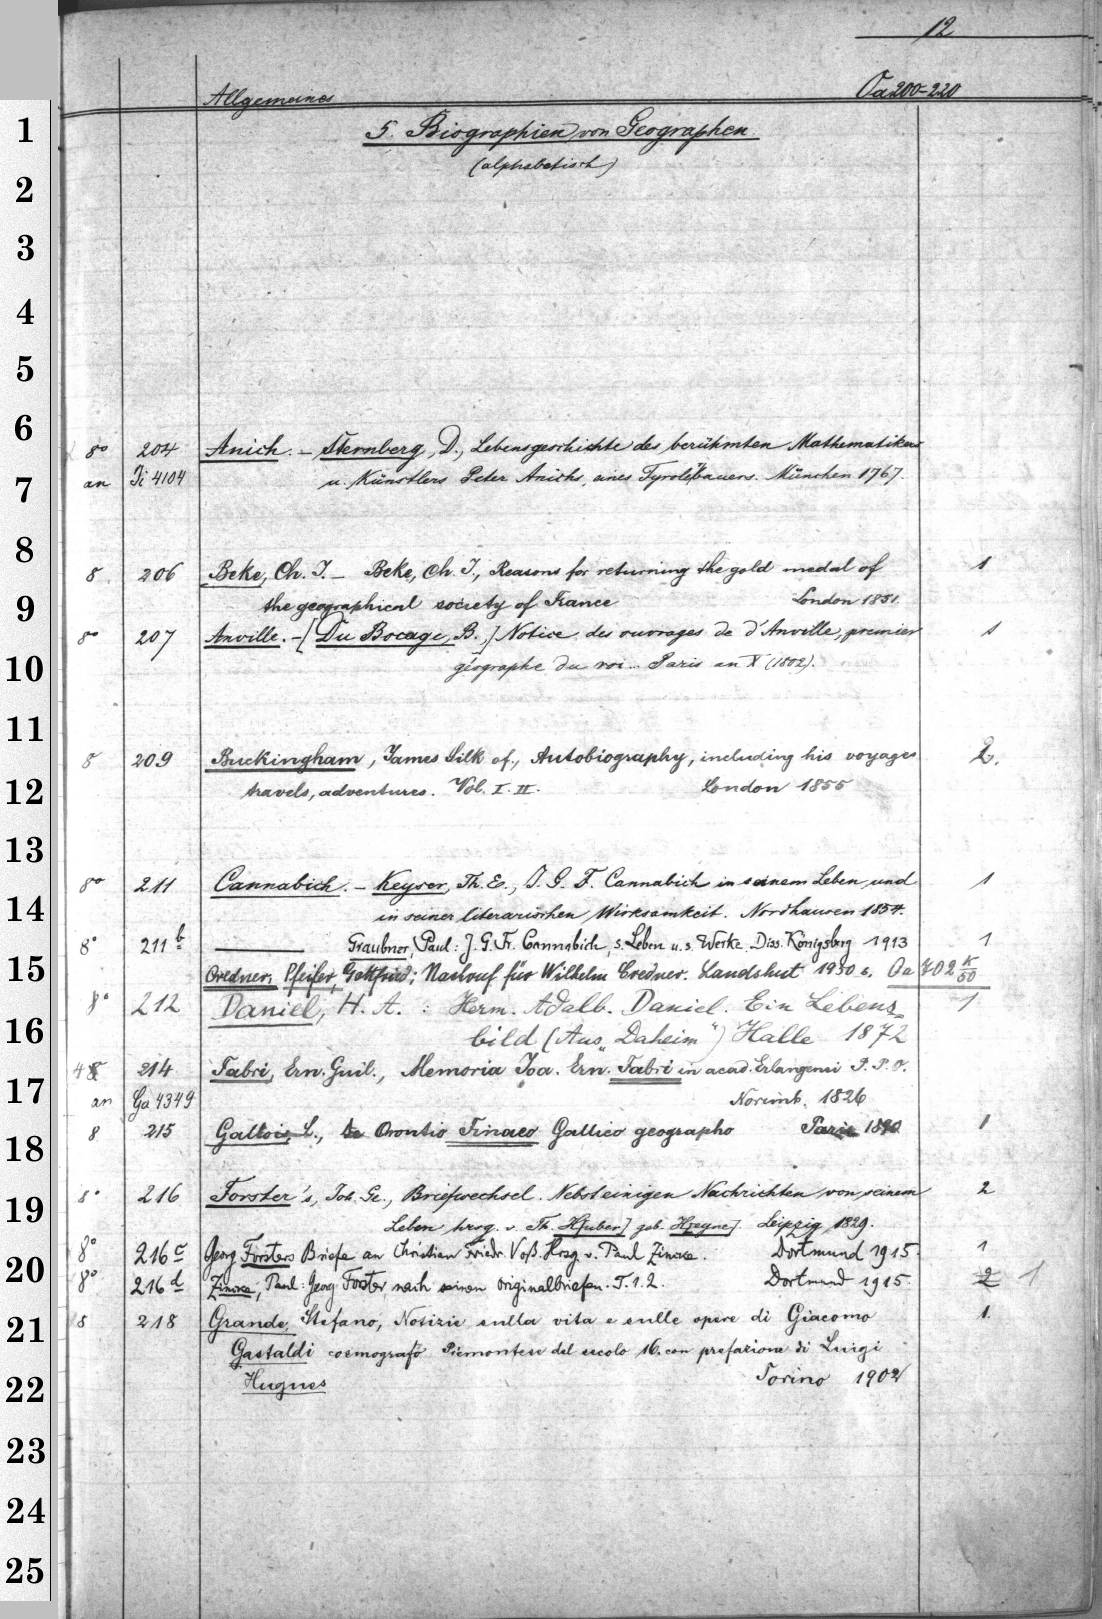 12
Allgemeines Oa 200-220
1 5. Biographien von Geographen
2 (alphabetisch)
3
4
5
6
8° 204 Anich. – Sternberg, D., Lebensgeschichte des berühmten Mathematikers
7 an Ji 4104 u. Künstlers Peter Anichs, eines Tyrolerbauers. München 1767.
8
8. 206 Beke, Ch. T. – Beke, Ch. T., Reasons for returning the gold medal of 1
9 the geographical society of France London 1851.
8° 207 Anville. – [Du Bocage, B.,] Notice des ouvrages de d'Anville, premier 1
10 géographe du roi... Paris an X (1802).
11
8 209 Buckingham, James Silk of., Autobiography, including his voyages 2.
12 travels, adventures. Vol. I. II. London 1855
13
8° 211 Cannabich. – Keyser, Th. E., J. G. F. Cannabich in seinem Leben und 1
14 in seiner literarischen Wirksamkeit. Nordhausen 1854.
8° 211 b ——— Graubner, Paul: J. G. Fr. Cannabich, s. Leben u. s. Werke. Diss. Königsberg 1913 1
15 Credner, Pfeifer, Gottfried: Nachruf für Wilhelm Credner. Landshut 1950 s. Oa 702 K/50
8° 212 Daniel, H. A. : Herm. Adalb. Daniel. Ein Lebens= 1
16 bild (Aus „Daheim“) Halle 1872
4 214 Fabri, Ern. Guil., Memoria Joa. Ern. Fabri in acad. Erlangensi P. P. O.
17 an Ga 4349 Norimb. 1826
8 215 Gallois, L., de Orontio Finaeo Gallico geographo Paris 1890 1
18
8° 216 Forster's, Joh. Ge., Briefwechsel. Nebst einigen Nachrichten von seinem 2
19 Leben hrsg. v. Th. H[uber] geb. H[eyne]. Leipzig 1829.
8° 216 c Georg Forsters Briefe an Christian Friedr. Voß. Hrsg. v. Paul Zincke. Dortmund 1915. 1
20
8° 216 d Zincke, Paul: Georg Forster nach seinen Originalbriefen. T. 1. 2. Dortmund 1915. 2 1
21 8 218 Grande, Stefano, Notizie sulla vita e sulle opere di Giacomo 1.
Gastaldi cosmografo Piemontese del secolo 16. con prefazione di Luigi
22 Hugues Torino 1902
23
24
25